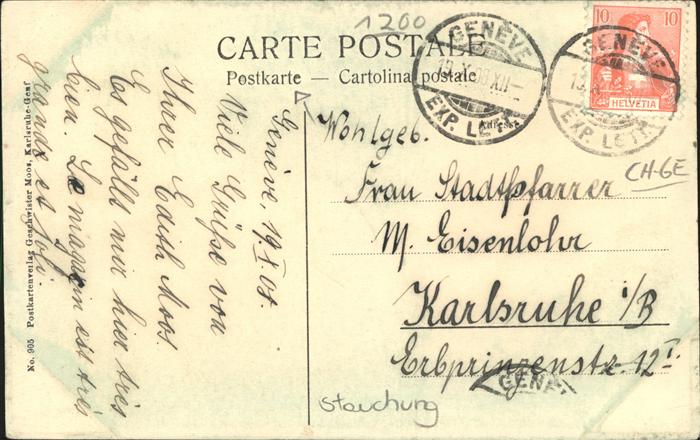 1200
CARTE POSTALE
Postkarte — Cartolina postale
GENÈVE
EXP. LETT.
GENÈVE
EXP. LETT.
10 10
HELVETIA
Genève, 19.X.08.
Viele Grüße von
Ihrer Edith Moos.
Es gefällt mir hier très
bien. Le magasin est très
grande et joli.
No. 905 Postkartenverlag Geschwister Moos, Karlsruhe-Genf
Wohlgeb.
Frau Stadtpfarrer
CH-GE
M. Eisenlohr
Karlsruhe i/B
Erbprinzenstr. 12 I
GENÈ
Stauchung